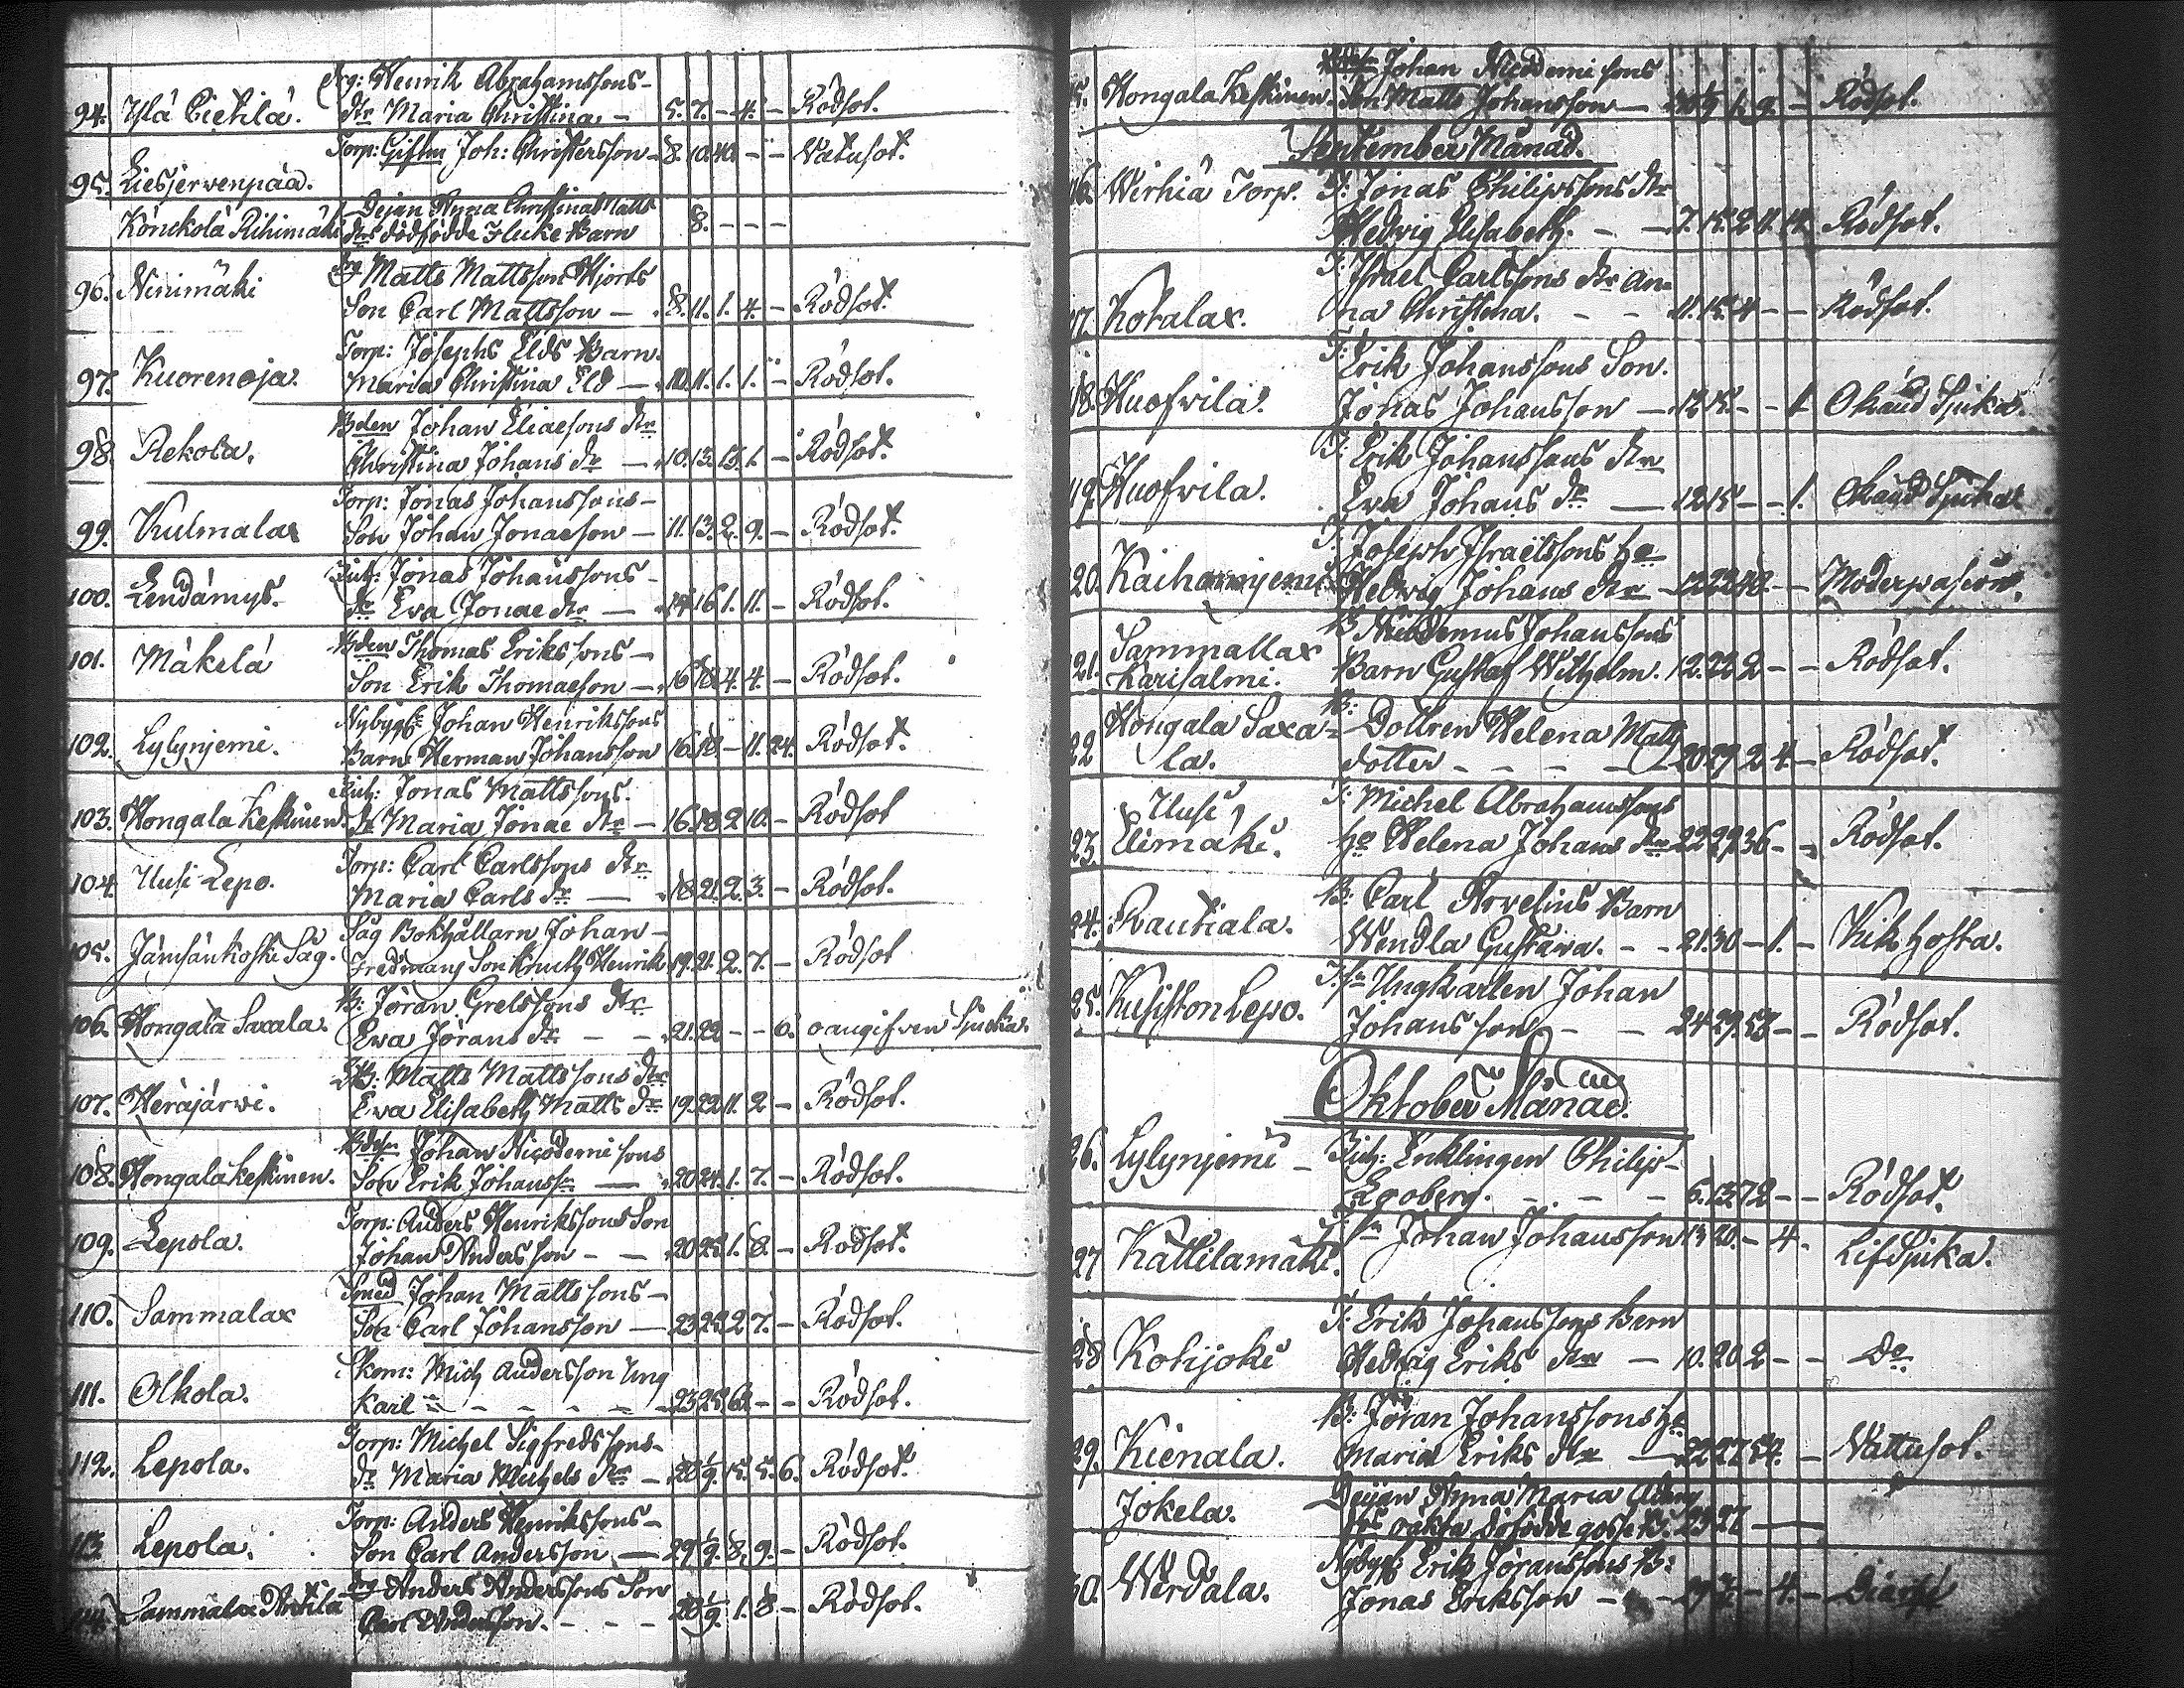 Drg: Henrik Abrahamssons-
94. Ylá Pietilá. dr Maria Christina - 5. 7. - 4. - Rödsot.
Torp: Giftm Joh: Christersson - 8. 10. 40. - - Vatusot.
95. Liesjerwenpää.
Dejan Anna Christina Matts
Könckolä Rihimäki drs dödfödde Flicke Barn 8. - - -
Drg Matts Mattsson Hjorts
96. Ninimäki Son Carl Mattsson - 8. 11. 1. 4. - Rödsot.
Torp: Josephs Elds Barn.
97. Kuorenoja. Maria Christina Eld - 10. 11. 1. 1. - Rödsot.
Bden Johan Eliaesons dr
98. Rekola. Christina Johans dr - 10. 13. 13. 1. - Rödsot.
Torp: Jonas Johanssons-
99. Kulmalax Son Johan Jonaeson - 11. 13. 2. 9. - Rödsot.
Inh: Jonas Johanssons-
100. Lendämys. dr Eva Jonae dr - 14 16 1. 11. - Rödsot.
Bden Thomas Erikssons-
101. Mäkelä Son Erik Thomaeson - 16 18 4. 4. - Rödsot.
Nybygg: Johan Henrikssons
102. Lylynjemi. Barn Herman Johansson 16. 18 - 11. 24. Rödsot.
Inh: Jonas Mattssons.
103. Hongala Keskinen. dr Maria Jonae dr - 16. 18 2 10. - Rödsot
Torp: Carl Carlssons dr
104. Uusi Lepo. Maria Carls dr - 18. 21. 2. 3. - Rödsot.
Såg Bokhållarn Johan-
105. Jämsänkoski Såg. Fredmans Son Knuth Henrik 19. 21. 2. 7. - Rödsot
B: Jöran Grelssons dr
106. Hongala Saxala. Eva Jörans dr - - 21. 22 - - 6. oangifven Sjucka.
B: Matts Mattssons dr
107. Heräjärvi. Eva Elisabeth Matts dr 19. 22 11. 2 - Rödsot.
Bdesn Johan Nicodemi sons
108. Hongala Keskinen. Son Erik Johanss: - 20 24. 1. 7. - Rödsot.
Torp: Anders Henrikssons Son
109. Lepola. Johan Andersson - - 20 25. 1. 8. - Rödsot.
Smed Johan Mattssons-
110. Sammalax Son Carl Johansson - 23 25 2 7. - Rödsot.
Skom: Mich Andersson Ung
111. Olkola. Karl - - - - - 23 25 62 - - Rödsot.
Torp: Michel Sigfredssons-
112. Lepola. dr Maria Michels dr - 28 1/9. 15. 5. 6. Rödsot.
Torp: Anders Henrikssons-
113. Lepola. Son Carl Andersson - 29 1/9. 8. 9. - Rödsot.
Drg Anders Anderssons Son
114. Sammalax Anttila Carl Andersson. - - - 28 1/9. 1. 8 - Rödsot.
Bdesn Johan Nicodemi sons
15. Hongala Keskinen - Son Matts Johansson - 30 1/9 1. 9. - Rödsot.
September Månad.
16. Werhiä Torp. T: Jonas Philipssons dr
Hedvig Elisabeth. - - 7. 15. 2 11. 14. Rödsot.
T: Israel Carlssons dr An-
17. Kotalax. na Christina. - - 11. 15. 4 - - Rödsot.
T: Erik Johanssons Son.
18. Huofvila. Jonas Johansson - 12 15. - - 1. Okänd Sjuka.
T: Erik Johanssons dr
19. Huofvila. Eva Johans dr - 12 15 - - 1. Okänd Sjuka
T: Joseph Israelssons ho
20. Kaihanjemi Hedvig Johans dr - 13 22 48. - - Moderpasion.
Sammallax B Nicodemus Johanssons
21. Karisalmi. Barn Gustaf Wilhelm. 12. 22 2 - - Rödsot.
Hongala Saxa- B: Dottren Helena Matts
22 la. dotter - - - - 20 29 2 4. - Rödsot.
Uusi T: Michel Abrahamssons
23. Elimäki. ho Helena Johans dr 22 29 36 - - Rödsot.
B: Carl Arvelius Barn
24. Rautiala. Wendla Gustava. - - 21. 30 - 1. - Kikhosta.
T:sn Ungkarlen Johan
25. Kusiston Lepo. Johansson - - 24 29. 53 - - Rödsot.
Oktober Månad.
26. Lylynjemi - Inh: Enklingen Philip-
Egoberg. - - - - 6. 13. 72 - - Rödsot.
27 Kattilamäki. T: sn Johan Johansson 13 20. - 4. Lifsjuka.
T: Erik Johanssons Barn
28 Kohijoki Hedvig Eriks dr - 10. 20 2 - - Do
B: Jöran Johanssons ho
29. Kienala. Maria Eriks dr - 22 27 54. - Vattusot.
Jokela. Dejan Anna Maria
drs oäkta dödfödde gosse B. 23 27 -
Nybygg: Erik Jöranssons B:
30. Werdala. Jonas Eriksson - - 4. - Diarré